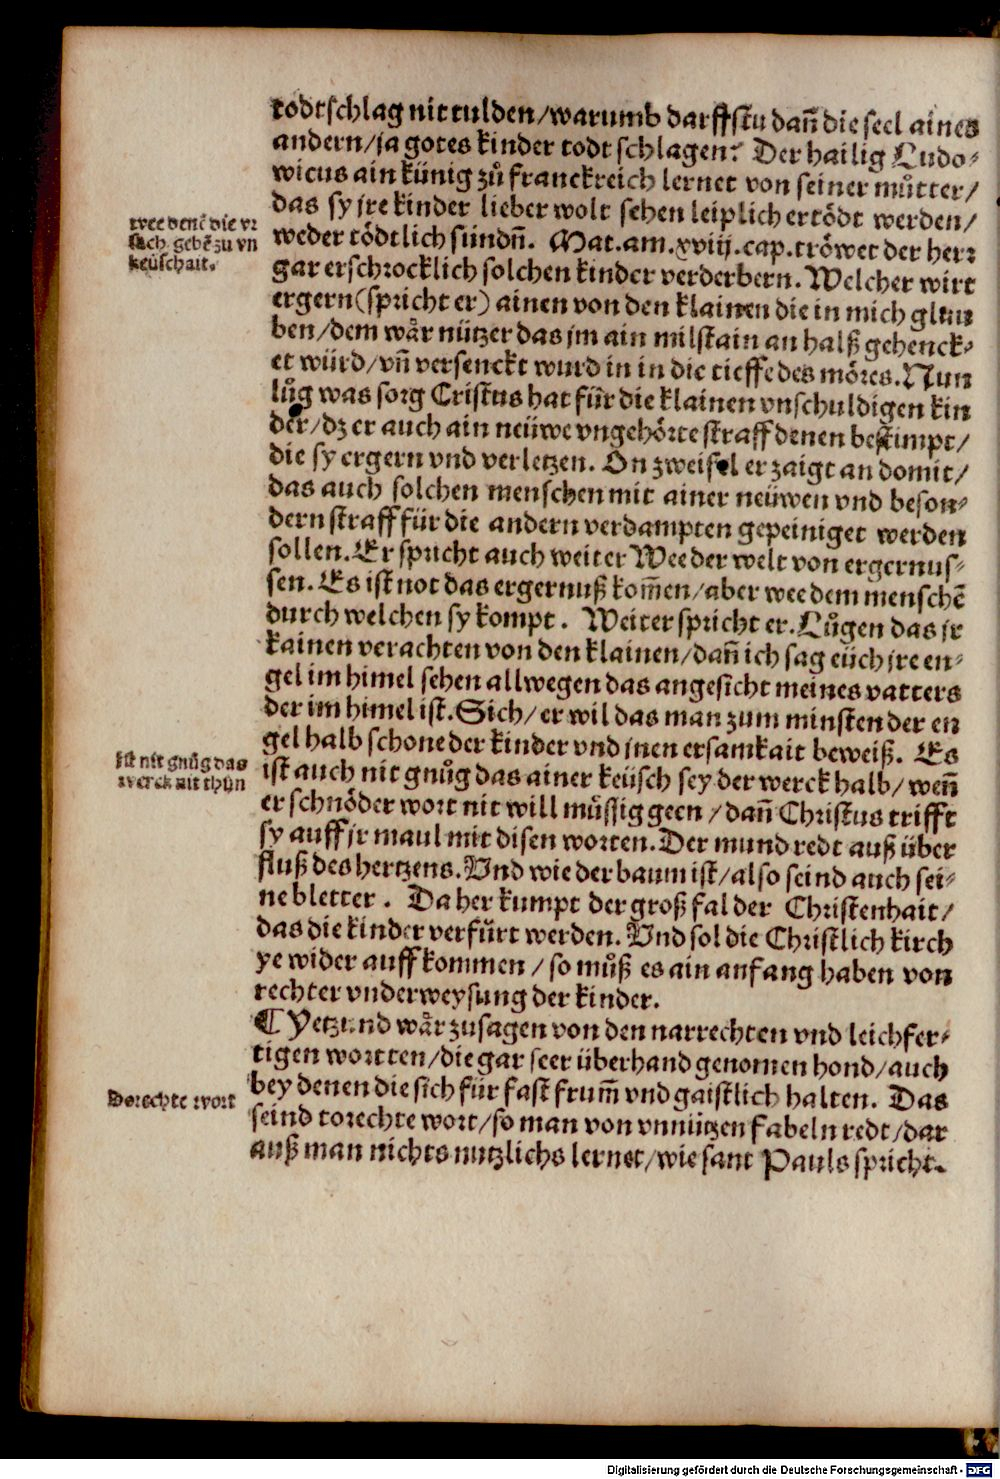 todtschlag nit tulden/warumb darffstu dañ die seel aines
andern/ja gotes kinder todt schlagen? Der hailig Ludo-
wicus ain künig zů franckreich lernet von seiner můtter/
das sy jre kinder lieber wolt sehen leiplich ertödt werden/
wee denē die vr
sach gebē zu vn
keüschait.
weder tödtlich sündñ. Mat.am.xviij.cap.tröwet der herr
gar erschrocklich solchen kinder verderbern. Welcher wirt
ergern(spricht er) ainen von den klainen die in mich glau
ben/dem wår nützer das jm ain milstain an halß gehenck-
et würd/vñ versenckt wurd in in die tieffe des möres. Nun
lůg was sorg Cristus hat für die klainen vnschuldigen kin
der/dz er auch ain neüwe vngehörte straff denen bestimpt/
die sy ergern vnd verletzen. On zweifel er zaigt an domit/
das auch solchen menschen mit ainer neüwen vnd beson-
dern straff für die andern verdampten gepeiniget werden
sollen. Er spricht auch weiter Wee der welt von ergernus-
sen. Es ist not das ergernuß kom̃en/aber wee dem menschē
durch welchen sy kompt. Weiter spricht er. Lůgen das jr
kainen verachten von den klainen/dañ ich sag eüch jre en-
gel im himel sehen allwegen das angesicht meines vatters
der im himel ist. Sich/er wil das man zum minsten der en
gel halb schone der kinder vnd jnen ersamkait beweiß. Es
Ist nit gnůg das
werck nit thůn
ist auch nit gnůg das ainer keüsch sey der werck halb/weñ
er schnöder wort nit will můssig geen/dañ Christus trifft
sy auff jr maul mit disen worten. Der mund redt auß über
fluß des hertzens. Vnd wie der baum ist/also seind auch sei-
ne bletter. Da her kumpt der groß fal der Christenhait/
das die kinder verfürt werden. Vnd sol die Christlich kirch
ye wider auff kommen/so můß es ain anfang haben von
rechter vnderweysung der kinder.
¶ Yetzund wår zusagen von den narrechten vnd leichfer-
tigen wortten/die gar seer überhand genomen hond/auch
bey denen die sich für fast frum̃ vnd gaistlich halten. Das
Dorechte wort
seind torechte wort/so man von vnnützen fabeln redt/dar
auß man nichts nutzlichs lernet/wie sant Pauls spricht.
Digitalisierung gefördert durch die Deutsche Forschungsgemeinschaft - DFG